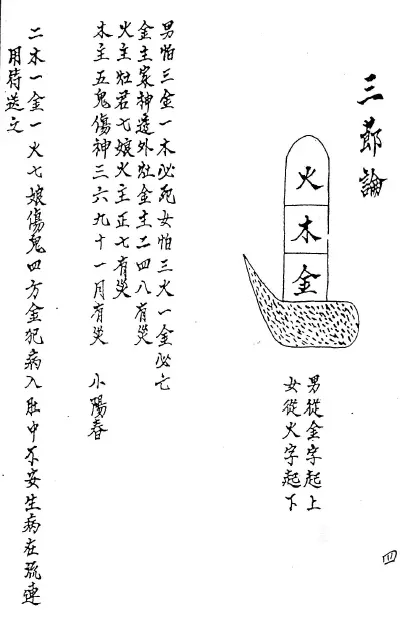 三節論
火
木
金
男從金字起上
女從火字起下
男怕三金一木必死女怕三火一金必亡
金主家神透外灶金主二四八有災
火主灶君七娘火主正七有災
木主五鬼傷神三六九十一月有災 小陽春
二木一金一火七娘傷鬼四方金犯病入肚中不安生病在琉連
用待送文
四